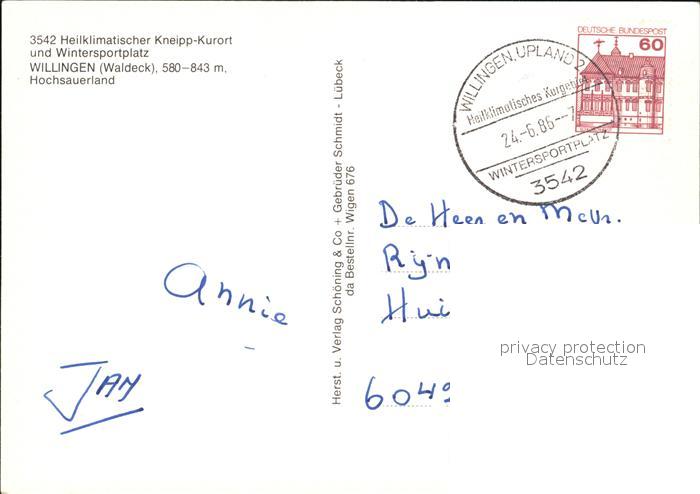 3542 Heilklimatischer Kneipp-Kurort
und Wintersportplatz
WILLINGEN (Waldeck), 580–843 m,
Hochsauerland
Annie
JAN
Herst. u. Verlag Schöning & Co + Gebrüder Schmidt - Lübeck
da Bestellnr. Wigen 676
DEUTSCHE BUNDESPOST
60
WILLINGEN, UPLAND 2
Heilklimatisches Kurgebiet
24.-6.86--7
WINTERSPORTPLATZ
3542
De Heer en Mevr.
Rijn
Hui
6049
privacy protection
Datenschutz